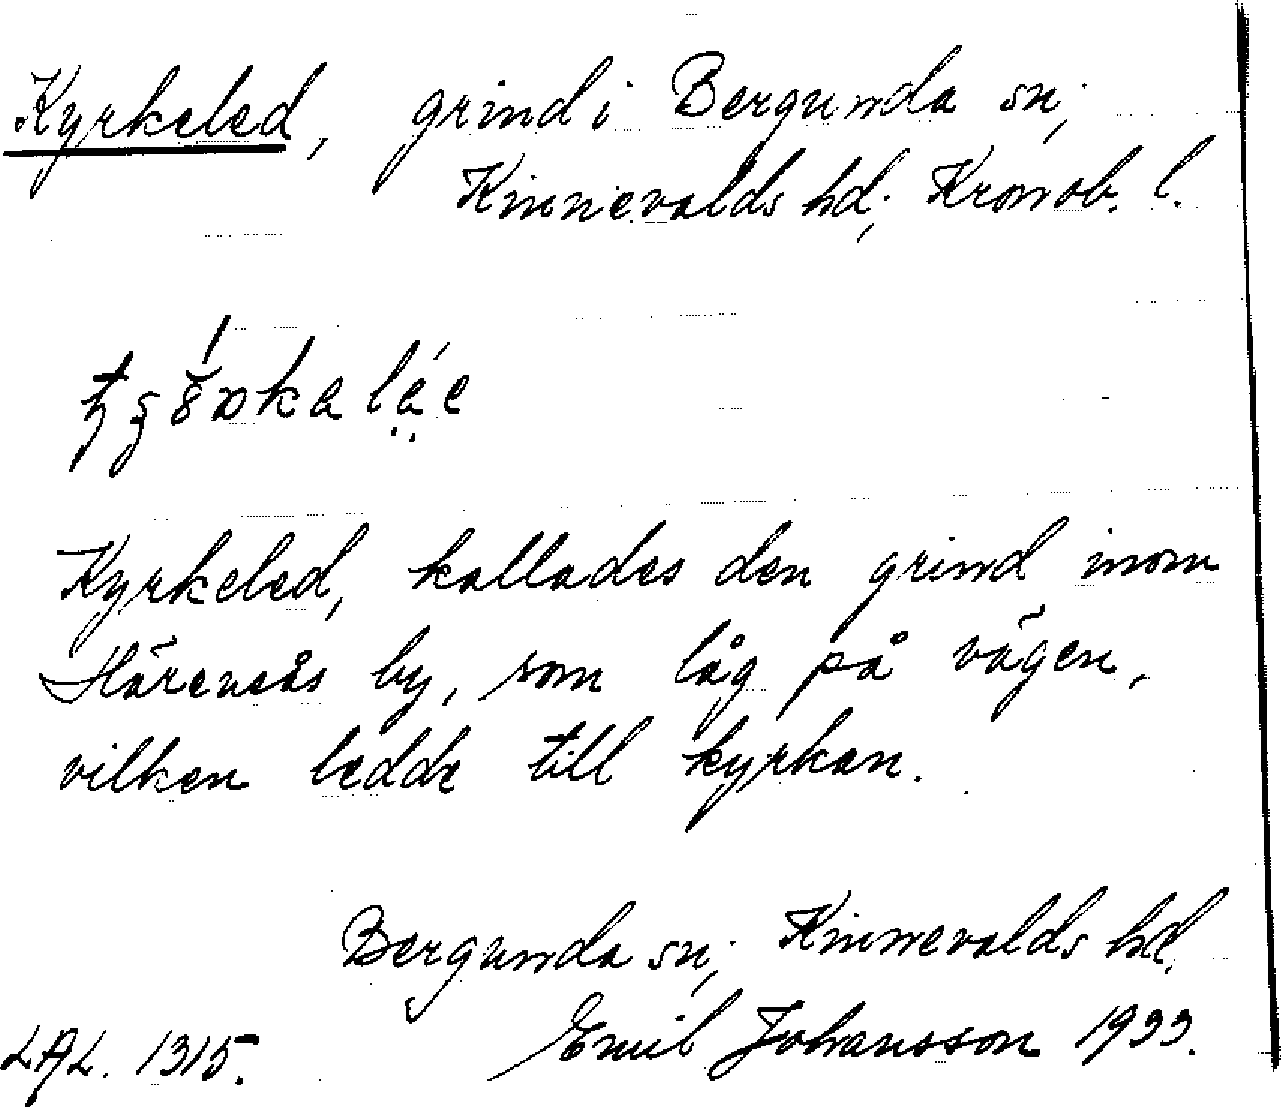 Kyrkeled, grind i Bergunda sn;
Kinnevalds hd; Kronob. l.
Kyrkeled, kallades den grind inom
Härensås by, som låg på vägen,
vilken ledde till kyrkan.
Bergunda sn; Kinnevalds hd.
LAL. 1315. Emil Johansson 1933.